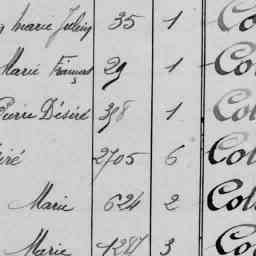 Marie Julien 35 1 Co
Marie François 29 1 Col
Pierre Désiré 398 1 Col
iré 2705 6 Col
Marie 624 2 Col
Marie 1287 3 Co